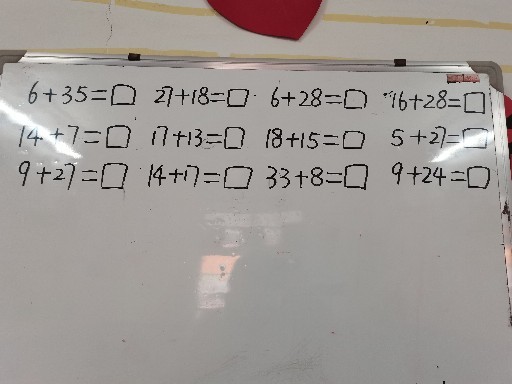 6+35=□ 27+18=□ 6+28=□ 16+28=□
14+7=□ 17+13=□ 18+15=□ 5+27=□
9+27=□ 14+17=□ 33+8=□ 9+24=□